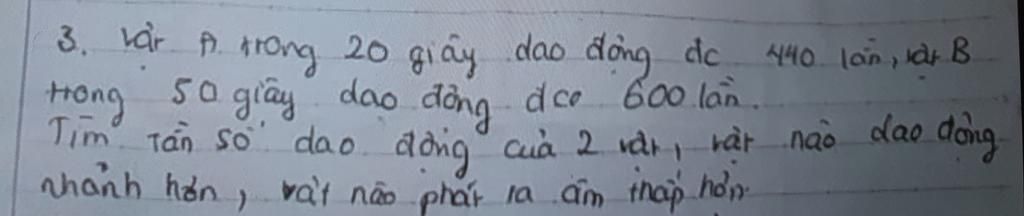 3. Vật A trong 20 giây dao động đc 440 lần, vật B
trong 50 giây dao động đcơ 600 lần.
Tìm tần số dao động của 2 vật, vật nào dao động
nhanh hơn, vật nào phát ra âm thấp hơn.